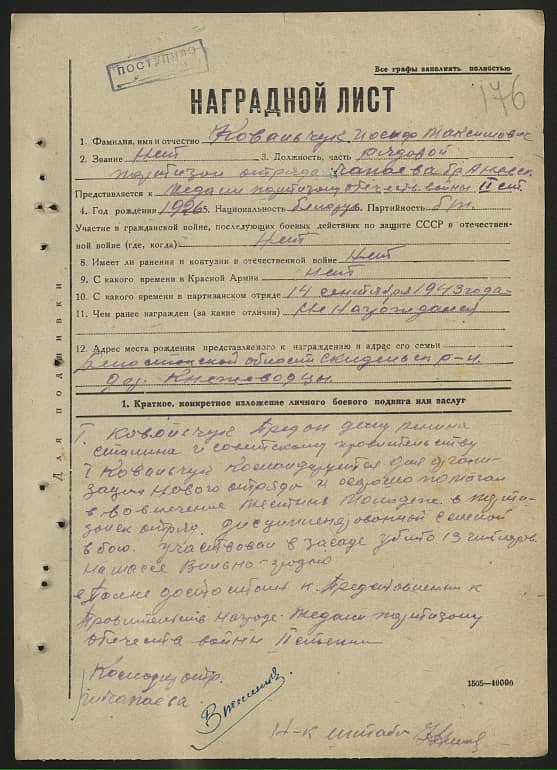 ПОСТУПИЛО
Все графы заполнять полностью
176
НАГРАДНОЙ ЛИСТ
1. Фамилия, имя и отчество Ковальчук Иосиф Максимович
2. Звание Нет 3. Должность, часть рядовой
партизан отряда Чапаева бр
Представляется к медали партизану отечеств войны II ст.
4. Год рождения 1926 5. Национальность Белорус 6. Партийность б/п.
Участие в гражданской войне, последующих боевых действиях по защите СССР в отечествен-
ной войне (где, когда) Нет
8. Имеет ли ранения и контузии в отечественной войне Нет
9. С какого времени в Красной Армии Нет
10. С какого времени в партизанском отряде 14 сентября 1943 года
11. Чем ранее награжден (за какие отличия) Не Награждался
12. Адрес места рождения представляемого к награждению и адрес его семьи
Белостокской области Скидельск р-н.
дер. Княжеводцы.
Для подшивки
1. Краткое, конкретное изложение личного боевого подвига или заслуг
Т. Ковальчук Предан делу Ленина
Сталина и советскому правительству
Т Ковальчук командируется для органи-
зации нового отряда и помогал
в вовлечение Молодежи в парти-
отряд. дисциплинированной смелой
в бою. участвовал в засаде убито 13
на шоссе Вильно-Гродно
достоин к Представлению к
Правительств Награде Медали партизану
Отечеств войны II степени
Командир отр.
Чапаева
1505—40000
Н-к штаба